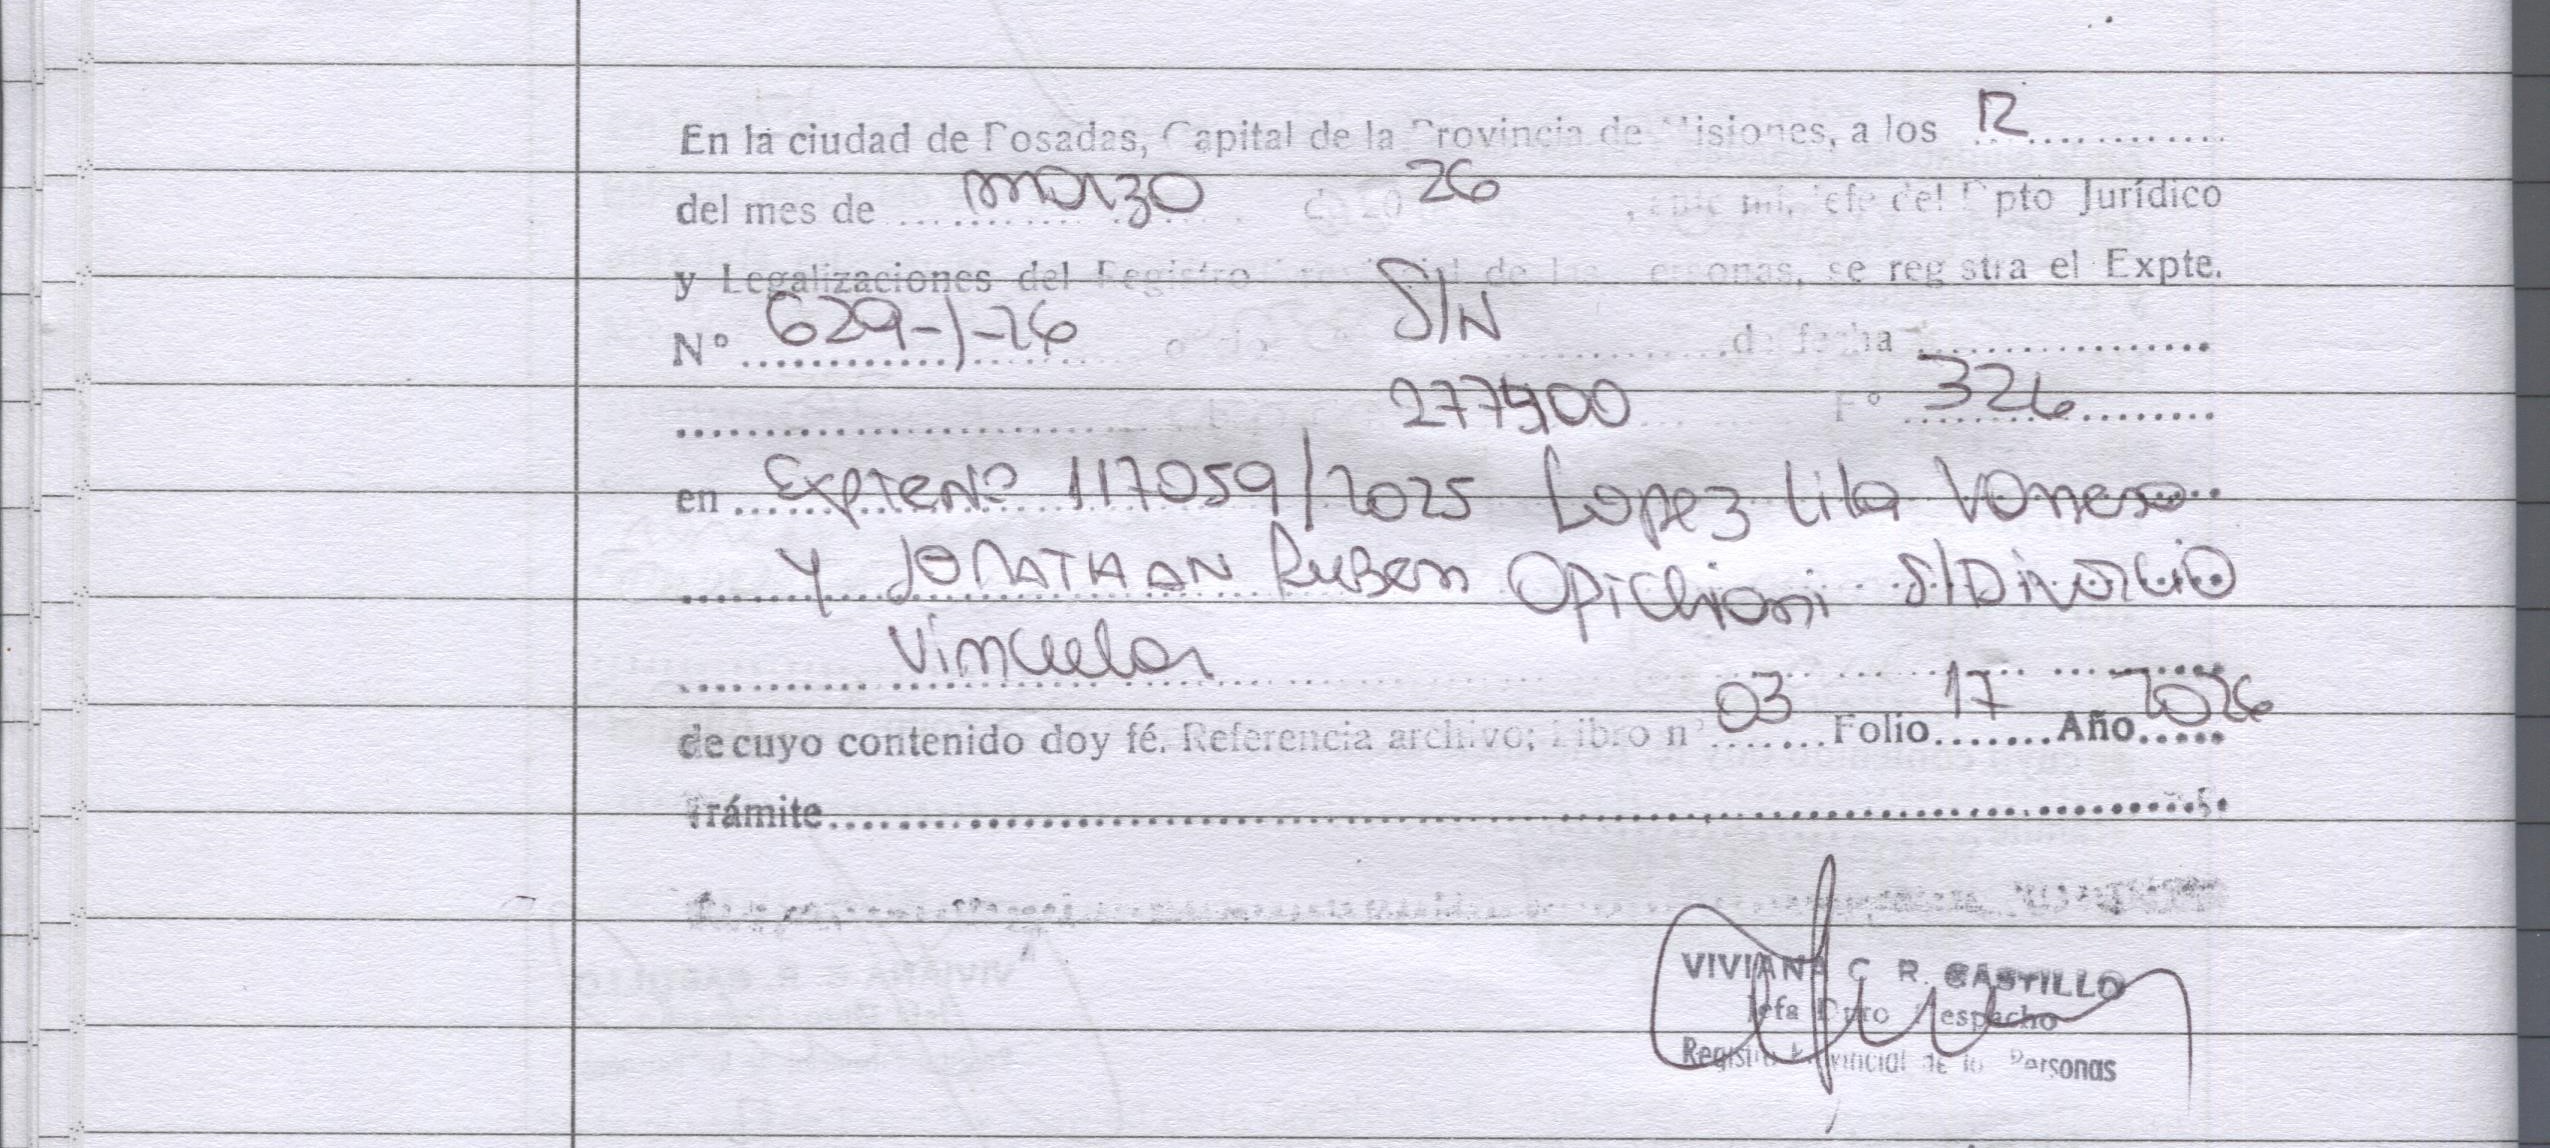 En la ciudad de Posadas, Capital de la Provincia de Misiones, a los 12
del mes de marzo de 20 26, ante mi, Jefe del Dpto Jurídico
y Legalizaciones del Registro Provincial de las Personas, se registra el Expte.
Nº 629-1-26 oficio S/N de fecha
277900 Fº 326
en Expte Nº 117059/2025 Lopez Lila Vanesa
y JONATHAN Ruben Opichiani S/Divorcio
Vincular
de cuyo contenido doy fé. Referencia archivo; Libro nº 03 Folio 17 Año 2026
Trámite
VIVIANA C R. CASTILLO
Jefa Dpto Despacho
Registro Provincial de las Personas